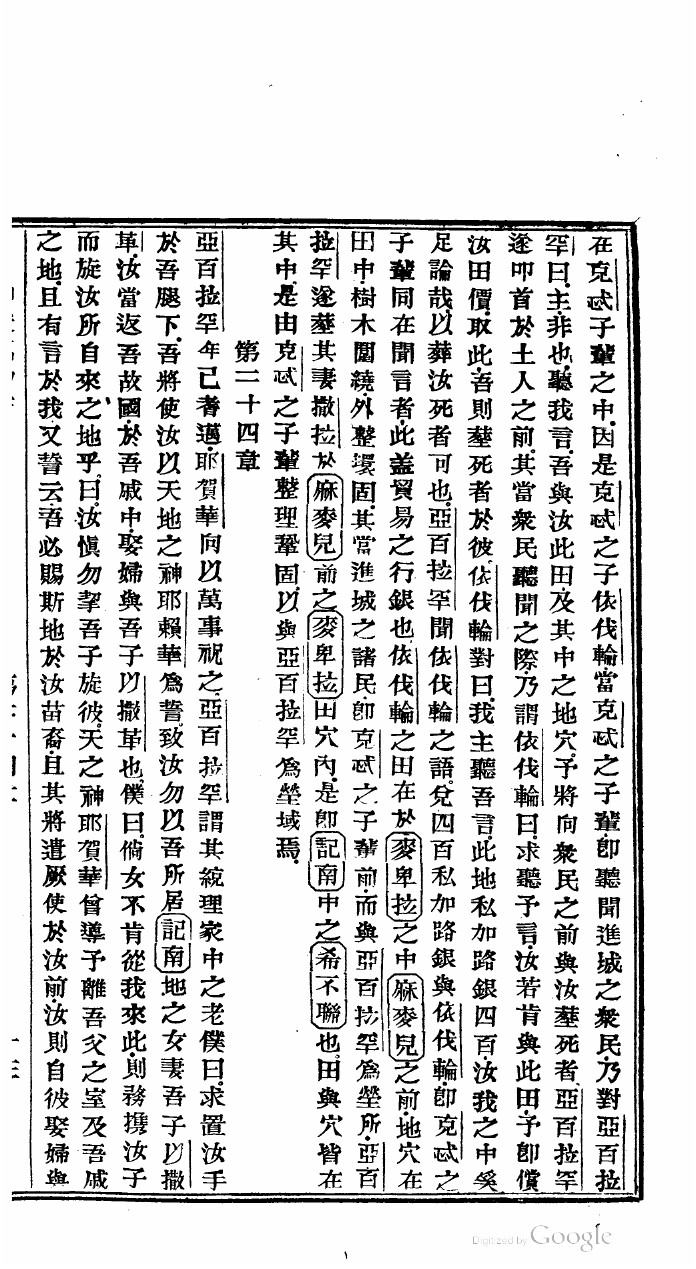 在克忒子輩之中因是克忒之子依伐輪當克忒之子輩卽聽聞進城之衆民乃對亞百拉
罕曰主非也聽我言吾與汝此田及其中之地穴予將向衆民之前與汝塟死者亞百拉罕
遂叩首於土人之前其當衆民聽聞之際乃謂依伐輪曰求聽予言汝若肯與此田予卽償
汝田價取此吾則塟死者於彼依伐輪對曰我主聽吾言此地私加路銀四百汝我之中奚
足論哉以葬汝死者可也亞百拉罕聞依伐輪之語兌四百私加路銀與依伐輪卽克忒之
子輩同在聞言者此盖貿易之行銀也依伐輪之田在於麥卑拉之中麻麥兒之前地穴在
田中樹木圍繞外整壞固其當進城之諸民卽克忒之子輩前而與亞百拉罕爲塋所亞百
拉罕遂塟其妻撒拉於麻麥兒前之麥卑拉田穴內是卽記南中之希不聯也田與穴皆在
其中是由克忒之子輩整理鞏固以與亞百拉罕爲塋域焉
第二十四章
亞百拉罕年已耆邁耶賀華向以萬事祝之亞百拉罕謂其統理家中之老僕曰求置汝手
於吾腿下吾將使汝以天地之神耶賴華爲誓致汝勿以吾所居記南地之女妻吾子以撒
革汝當返吾故國於吾戚中娶婦與吾子以撒革也僕曰倘女不肯從我來此則務攜汝子
而旋汝所自來之地乎曰汝愼勿挈吾子旋彼天之神耶賀華曾導予離吾父之室及吾戚
之地且有言於我又誓云吾必賜斯地於汝苗裔且其將遣厥使於汝前汝則自彼娶婦與
Digitized by Google